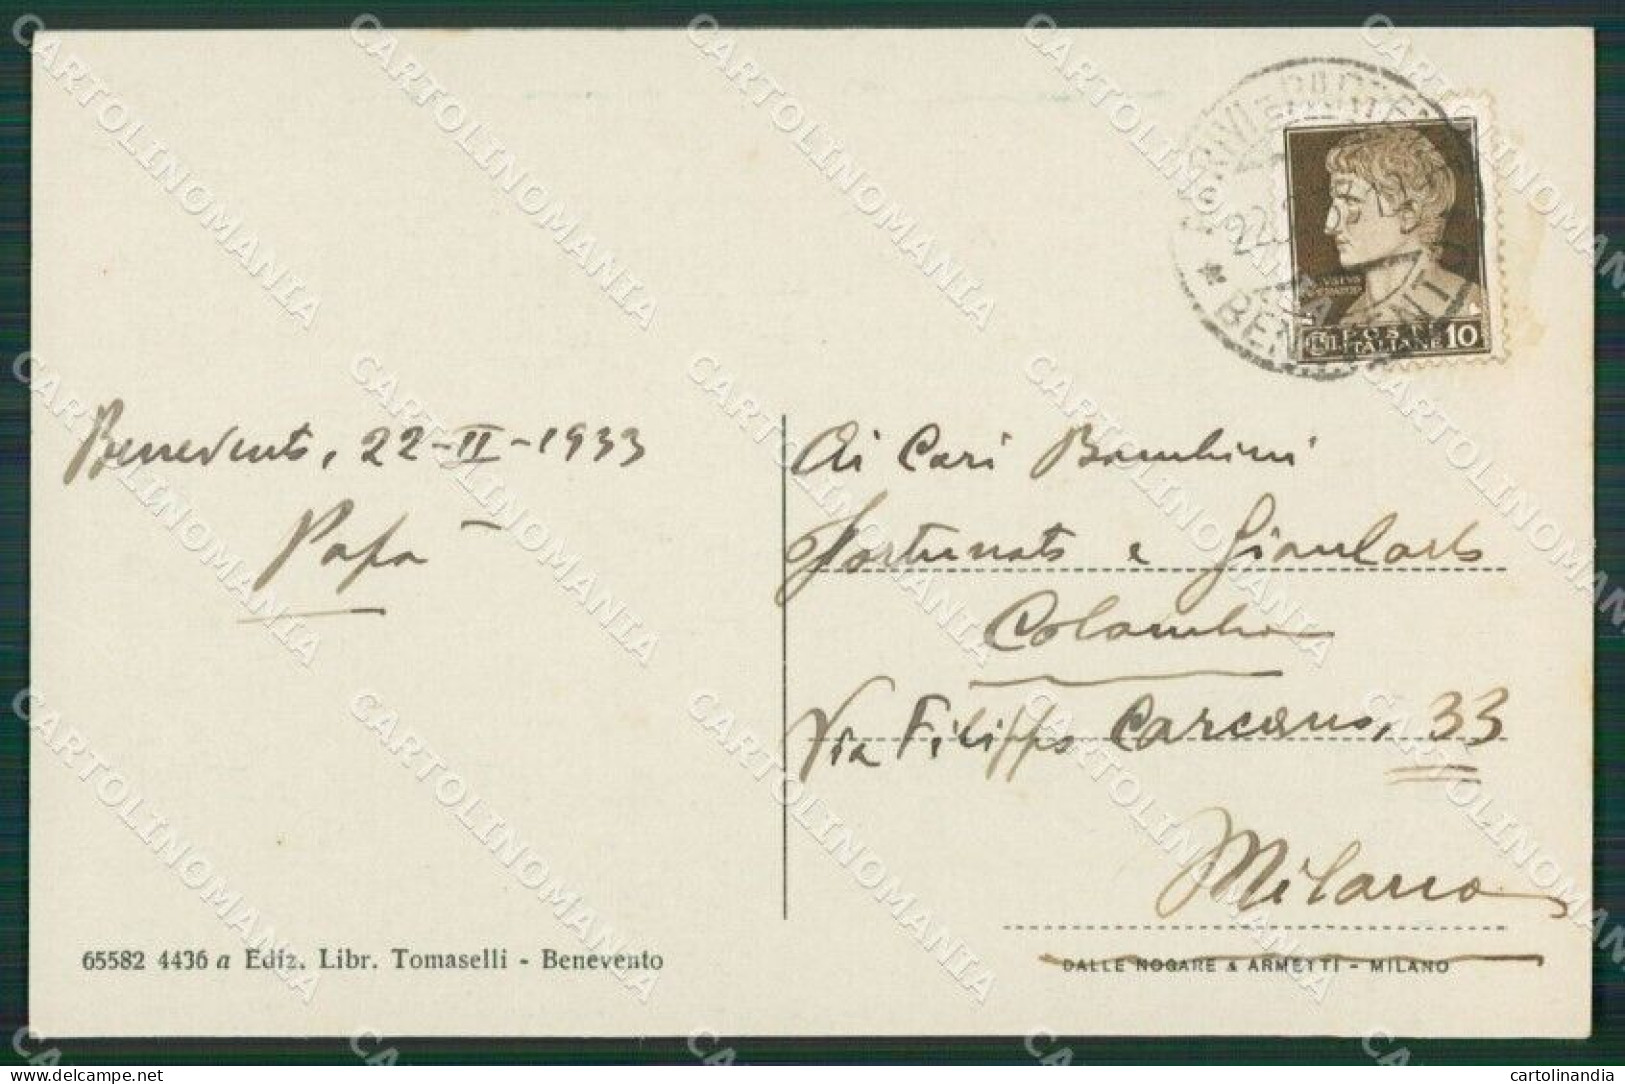 Benevento, 22-II-1933
Papà
Ai Cari Bambini
Fortunato e Giancarlo
Colombo
Via Filippo Carcano, 33
Milano
POSTE
ITALIANE 10
65582 4436 a Ediz. Libr. Tomaselli - Benevento
DALLE NOGARE & ARMETTI - MILANO
CARTOLINOMANIA
delcampe.net
cartolinandia